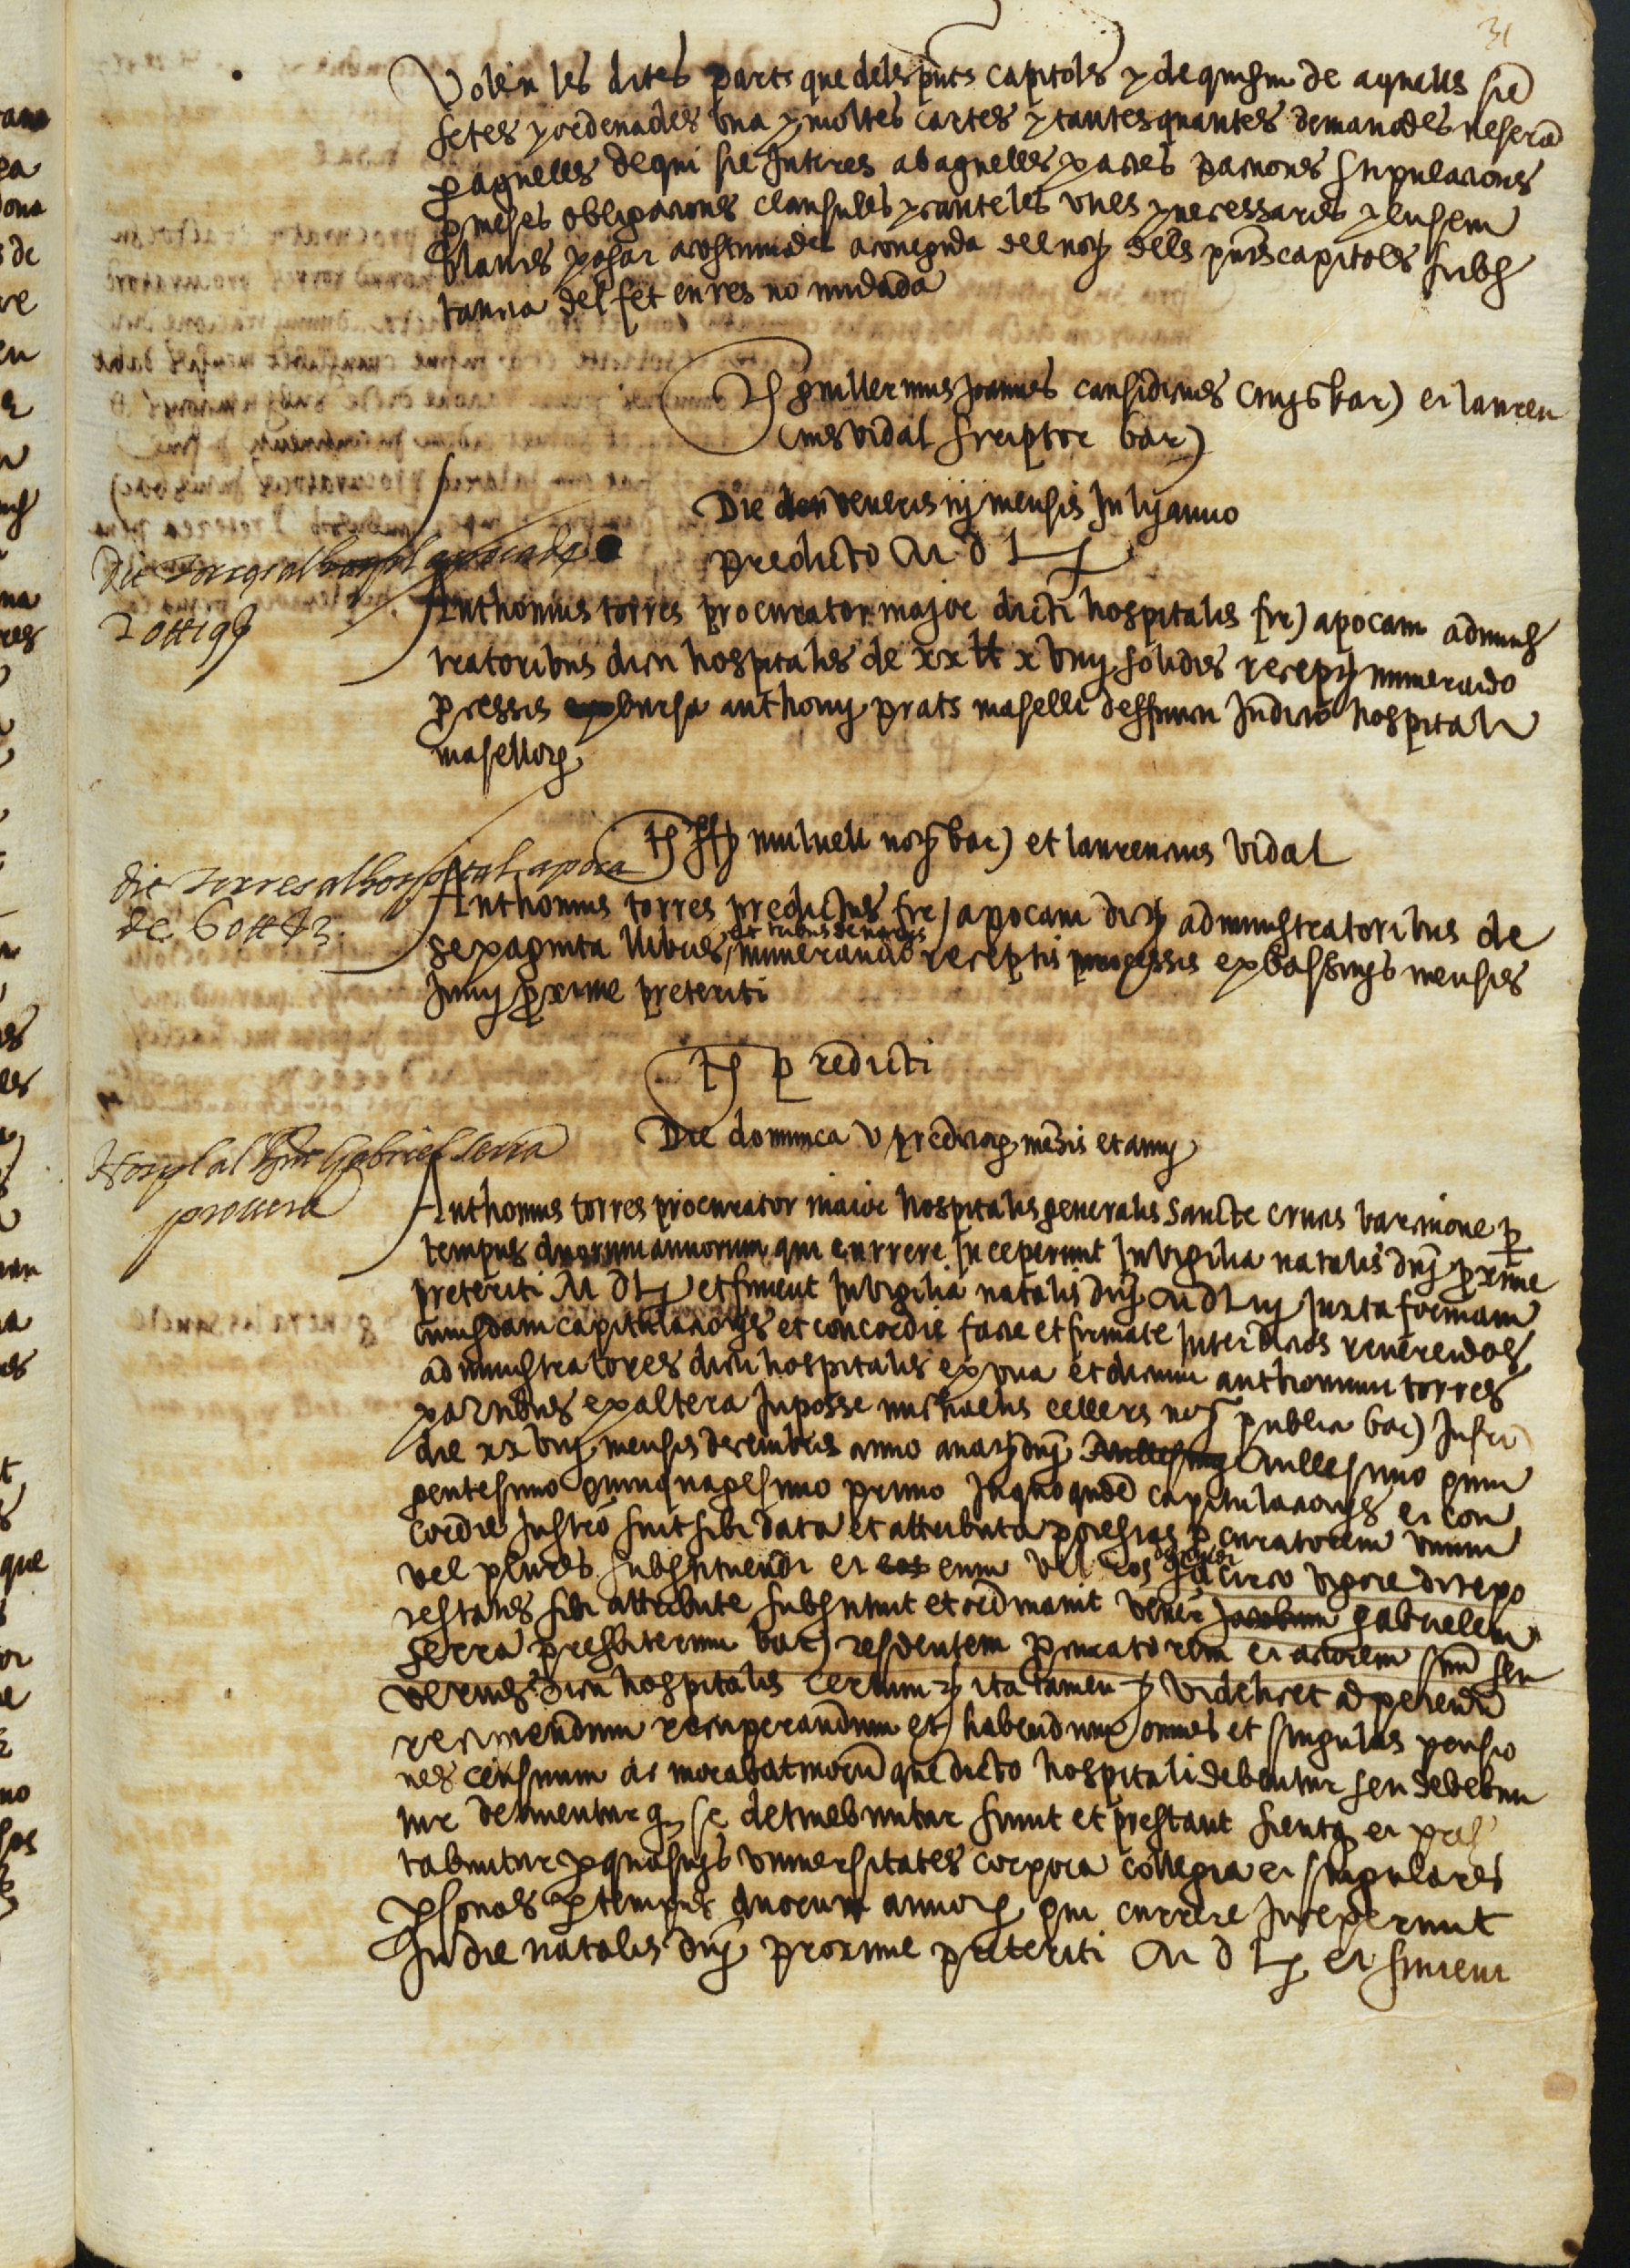 31
Volen les dites parts que dels pnts capitols y de quischu de aquells sie
fetes y ordenades una y moltes cartes y tantes quantes demanades ne sera
p aquelles de qui sie Interes ab aquelles pactes pactions stipulacions
pmeses obligacions clausules y cauteles utils y necessaries y en sem
blants posar acostumades a coneguda del not dels pnts capitols subs
tancia del fet en res no mudada
Ts guillermus Joannes causidicus civis bar) et lauren
cius vidal scriptor bar)
Die veneris mensis Julij anno
predicto M d Lij
dit Torres al hospital apocha de
Anthonius torres procurator major dicti hospitalis fir) apocam adminis
tratoribus dicti hospitalis de xx ll x viiij solidis receptis numerando
pcessis ex bursa anthonij prats maselli deffuncti In dicto hospitali
masellor
Ts mulnell not bar) et laurencius vidal
dit torres al hospital apoca
de 60 ll
Anthonius torres predictus fir) apocam dict administratoribus de
sexaginta libris et tribus denariis numerando receptis processis ex bassinis mensis
Junij proxime preteriti
Ts predicti
Die dominica v predictor mensis et anni
Hospital Gabriel serra
procura
Anthonius torres procurator maior hospitalis generalis Sancte crucis barcinone p
tempus duorum annorum qui currere Inceperunt In vigilia natalis dnj proxime
preteriti M d Lj et finient In vigilia natalis dnj M d Liij Juxta formam
cuiusdam capitulacionis et concordie facte et firmate Inter dictos reverendos
administratores dicti hospitalis ex una et dictum anthonium torres
partibus ex altera In posse michaelis cellers not publici bar) Infra
die xx viij mensis decembris anno a nat dnj Millesimo quin
gentesimo quinquagesimo primo In quo quidem capitulacionis et con
cordie Instro fuit sibi data et attributa potestas pcuratorem unum
vel plures substituendi et eum vel eos vigore dite po
testatis sibi attribute substituit et ordinavit gabrielem
serra presbiterum bar) residentem pcuratorem et actorem suum seu
verius dicti hospitalis certum ita tamen videlicet ad petendum
recipiendum recuperandum et habendum omnes et singulas pensio
nes censuum ac morabatinorum que dicto hospitali debentur seu debebun
tur detinentur seu detinebuntur fiunt et prestant fient et pres
tabuntur p quasvis universitates corpora collegia et singulares
psonas p tempus duorum annor qui currere Inceperunt
In die natalis dnj proxime preteriti M d Lj et finient